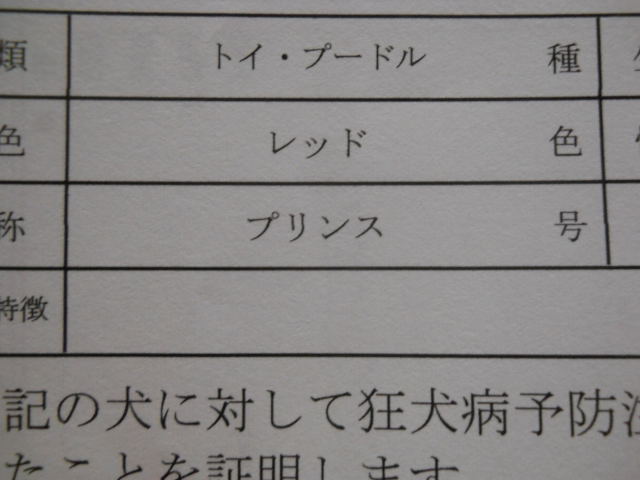 類 トイ・プードル 種
色 レッド 色
称 プリンス 号
特徴
記の犬に対して狂犬病予防注
たことを証明します